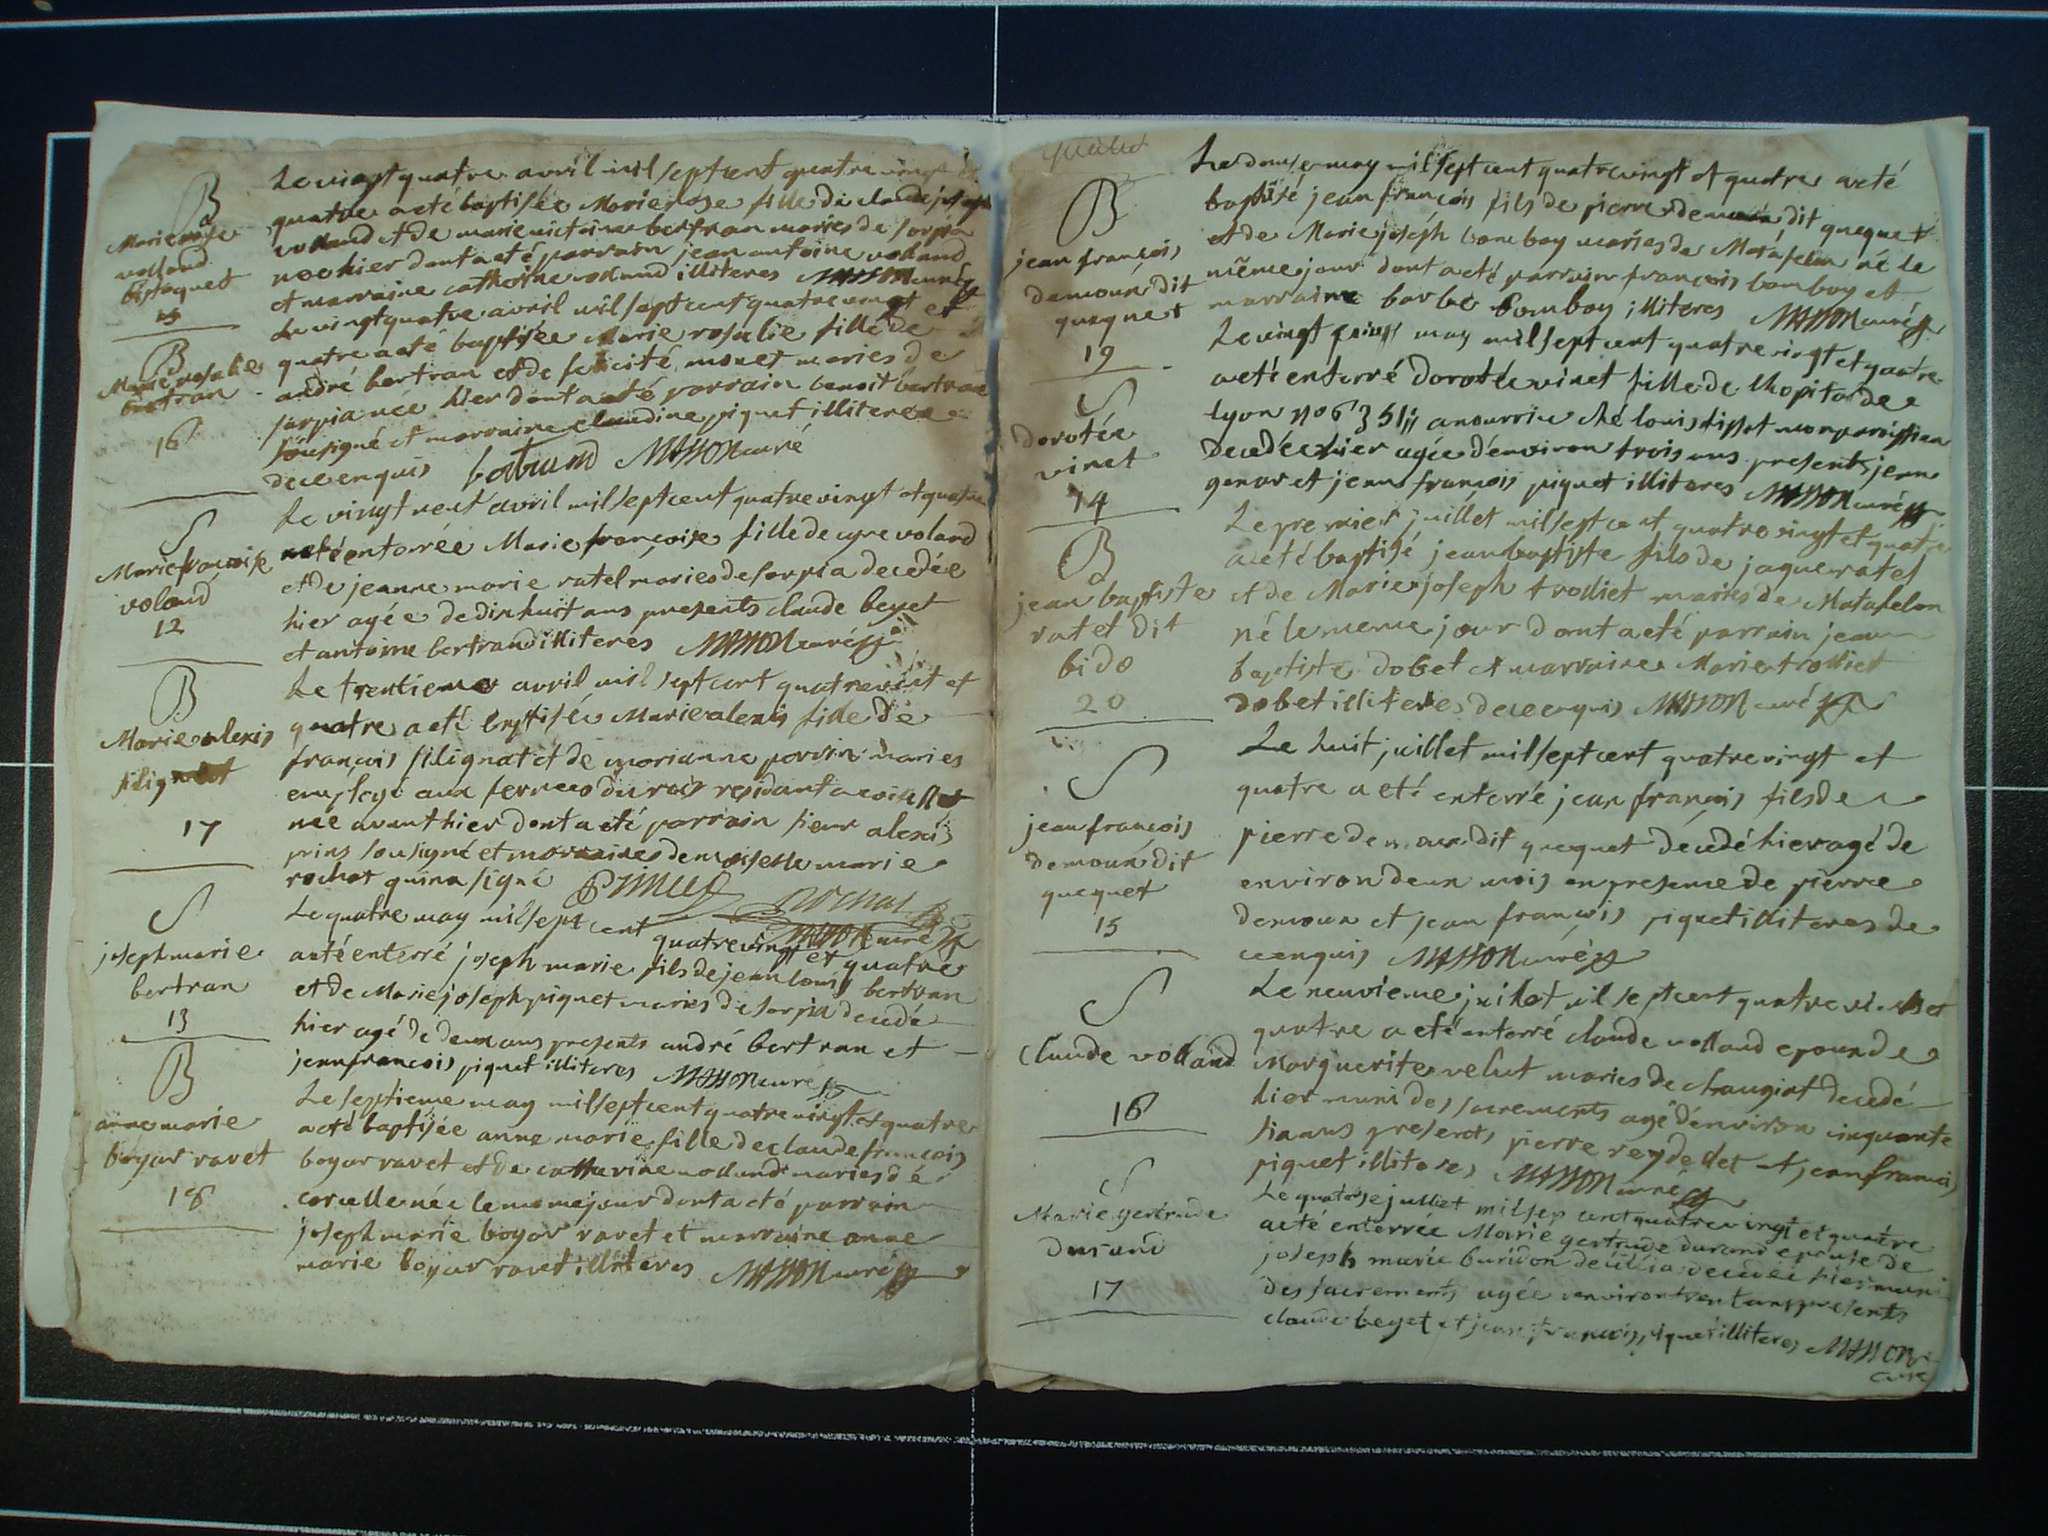 B
Marie rose
volland
bistoquet
15
Le vingt quatre avril mil sept cent quatre vingt et
quatre a eté baptisée Marie rose fille de claude joseph
volland et de marie victoire bertran maries de sorpia
nee hier dont a eté parrain jean antoine volland
et marraine catherine volland illiteres MASSON curé
B
Marie rosalie
bertran
16
Le vingt quatre avril mil sept cent quatre vingt et
quatre a eté baptisée Marie rosalie fille de
andré bertran et de felicité monet maries de
sorpia née hier dont a eté parrain benoit bertran
sousigné et marraine claudine piquet illiteree
de ce enquis bertrand MASSON curé
S
Marie francoise
voland
12
Le vingt neuf avril mil sept cent quatre vingt et quatre
a eté enterrée Marie françoise fille de cyre voland
et de jeanne marie ratel maries de sorpia decedée
hier agée de dix huit ans presents claude beyet
et antoine bertrand illiteres MASSON curé
B
Marie alexis
filignat
17
Le trentieme avril mil sept cent quatre vint et
quatre a eté baptisée Marie alexis fille de
françois filignat et de marianne porvin maries
employé aux fermes du roi residant a
née avant hier dont a eté parrain sieur alexis
prins sousigné et marraine demoiselle marie
rochat qui na signé Prince rochat
MASSON curé
S
joseph marie
bertran
13
Le quatre may mil sept cent quatre vingt et quatre
a eté enterré joseph marie fils de jean louis bertran
et de Marie joseph piquet maries de sorpia decedé
hier agé de deux ans presents andré bertran et
jean francois piquet illiteres MASSON curé
B
anne marie
boyar ravet
18
Le septieme may mil sept cent quatre vingt et quatre
a eté baptisée anne marie fille de claude francois
boyar ravet et de catterine volland maries de
corcelle née le meme jour dont a eté parrain
joseph marie boyar ravet et marraine anne
marie boyar ravet illiteres MASSON curé
B
jean françois
demoux dit
quequet
19
Le douse may mil sept cent quatre vingt et quatre a eté
baptisé jean françois fils de pierre demoux dit quequet
et de Marie joseph bomboy maries de Matafelon né le
même jour dont a eté parrain françois bomboy et
marraine barbe bomboy illiteres MASSON curé
S
dorotée
vinet
14
Le vingt may mil sept cent quatre vingt et quatre
a eté enterré dorotée vinet fille de lhopital de
lyon no 6351 a nourrice ché louis tissot mon paroissien
decedée hier agée d'environ trois ans presents jean
genar et jean françois piquet illiteres MASSON curé
B
jean baptiste
ratet dit
bido
20
Le premier juillet mil sept cent quatre vingt et quatre
a eté baptisé jean baptiste fils de jaque ratet
et de Marie joseph trolliet maries de Matafelon
né le meme jour dont a eté parrain jean
baptiste dobet et marraine Marie trolliet
dobet illiteres de ce enquis MASSON curé
S
jean françois
demoux dit
quequet
15
Le huit juillet mil sept cent quatre vingt et
quatre a eté enterré jean françois fils de
pierre demoux dit quequet decedé hier agé de
environ deux mois en presence de pierre
demoux et jean françois piquet illiteres de
ce enquis MASSON curé
S
Claude volland
16
Le neuvieme juillet mil sept cent quatre vingt et
quatre a eté enterré claude volland epoux de
Marguerite velut maries de chaugiat decedé
hier muni des sacrements agé d'environ cinquante
six ans presents pierre reydellet et jean francois
piquet illiteres MASSON curé
S
Marie gertrude
durand
17
Le quatorse juillet mil sep cent quatre vingt et quatre
a eté enterrée Marie gertrude durand epouse de
joseph marie buridon decedée hier munie
des sacrements agée denviron trent ans presents
claude beyet et jean francois piquet illiteres MASSON
curé